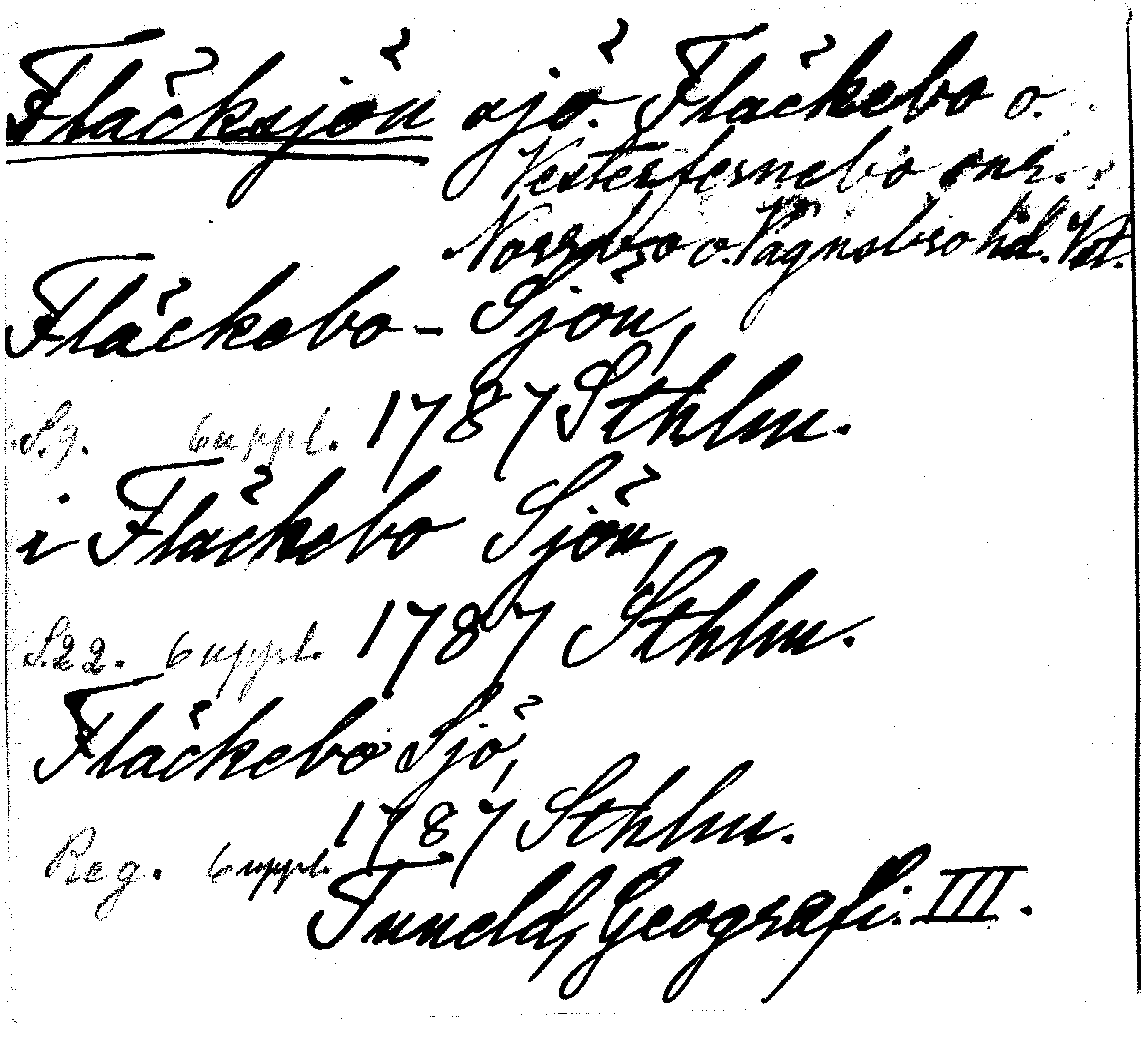 Fläcksjön sjö. Fläckebo o.
Vesterfernebo snr.
Norrbo o. Vagnsbro hd. Vst.
Fläckebo-Sjön,
S.9. 6 uppl. 1787 Sthlm.
i Fläckebo Sjön,
S.22. 6 uppl. 1787 Sthlm.
Fläckebo Sjö,
Reg. 6 uppl. 1787 Sthlm.
Tuneld, Geografi. III.